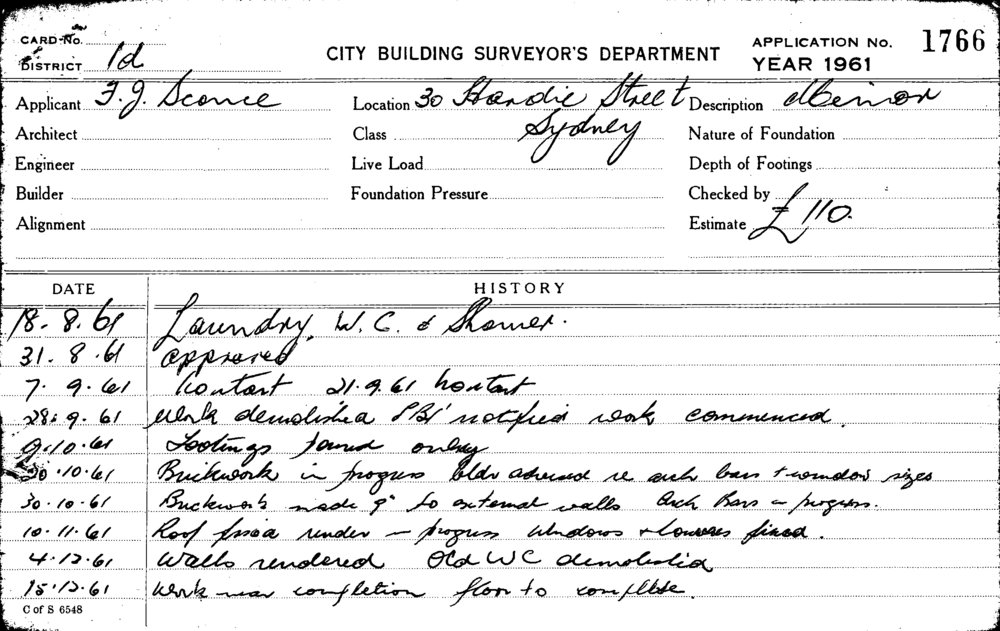 CARD No.
DISTRICT 1d
CITY BUILDING SURVEYOR'S DEPARTMENT
APPLICATION No. 1766
YEAR 1961
Applicant F. J. Sconce Location 30 Hardie Street Description Minor
Architect Class Sydney Nature of Foundation
Engineer Live Load Depth of Footings
Builder Foundation Pressure Checked by
Alignment Estimate £110.
DATE HISTORY
18.8.61 Laundry, W.C. & Shower.
31.8.61 approved
7.9.61 no start 21.9.61 no start
28.9.61 Work demolished notified work commenced.
9.10.61 Footings poured
20.10.61 Brickwork in progress bldr advised re arch bars + window sizes
30.10.61 Brickwork made 9" to external walls Arch Bars in progress.
10.11.61 Roof fixed render in progress windows + louvres fixed.
4.12.61 Walls rendered Old WC demolished
15.12.61 Work near completion floor to complete.
C of S 6548